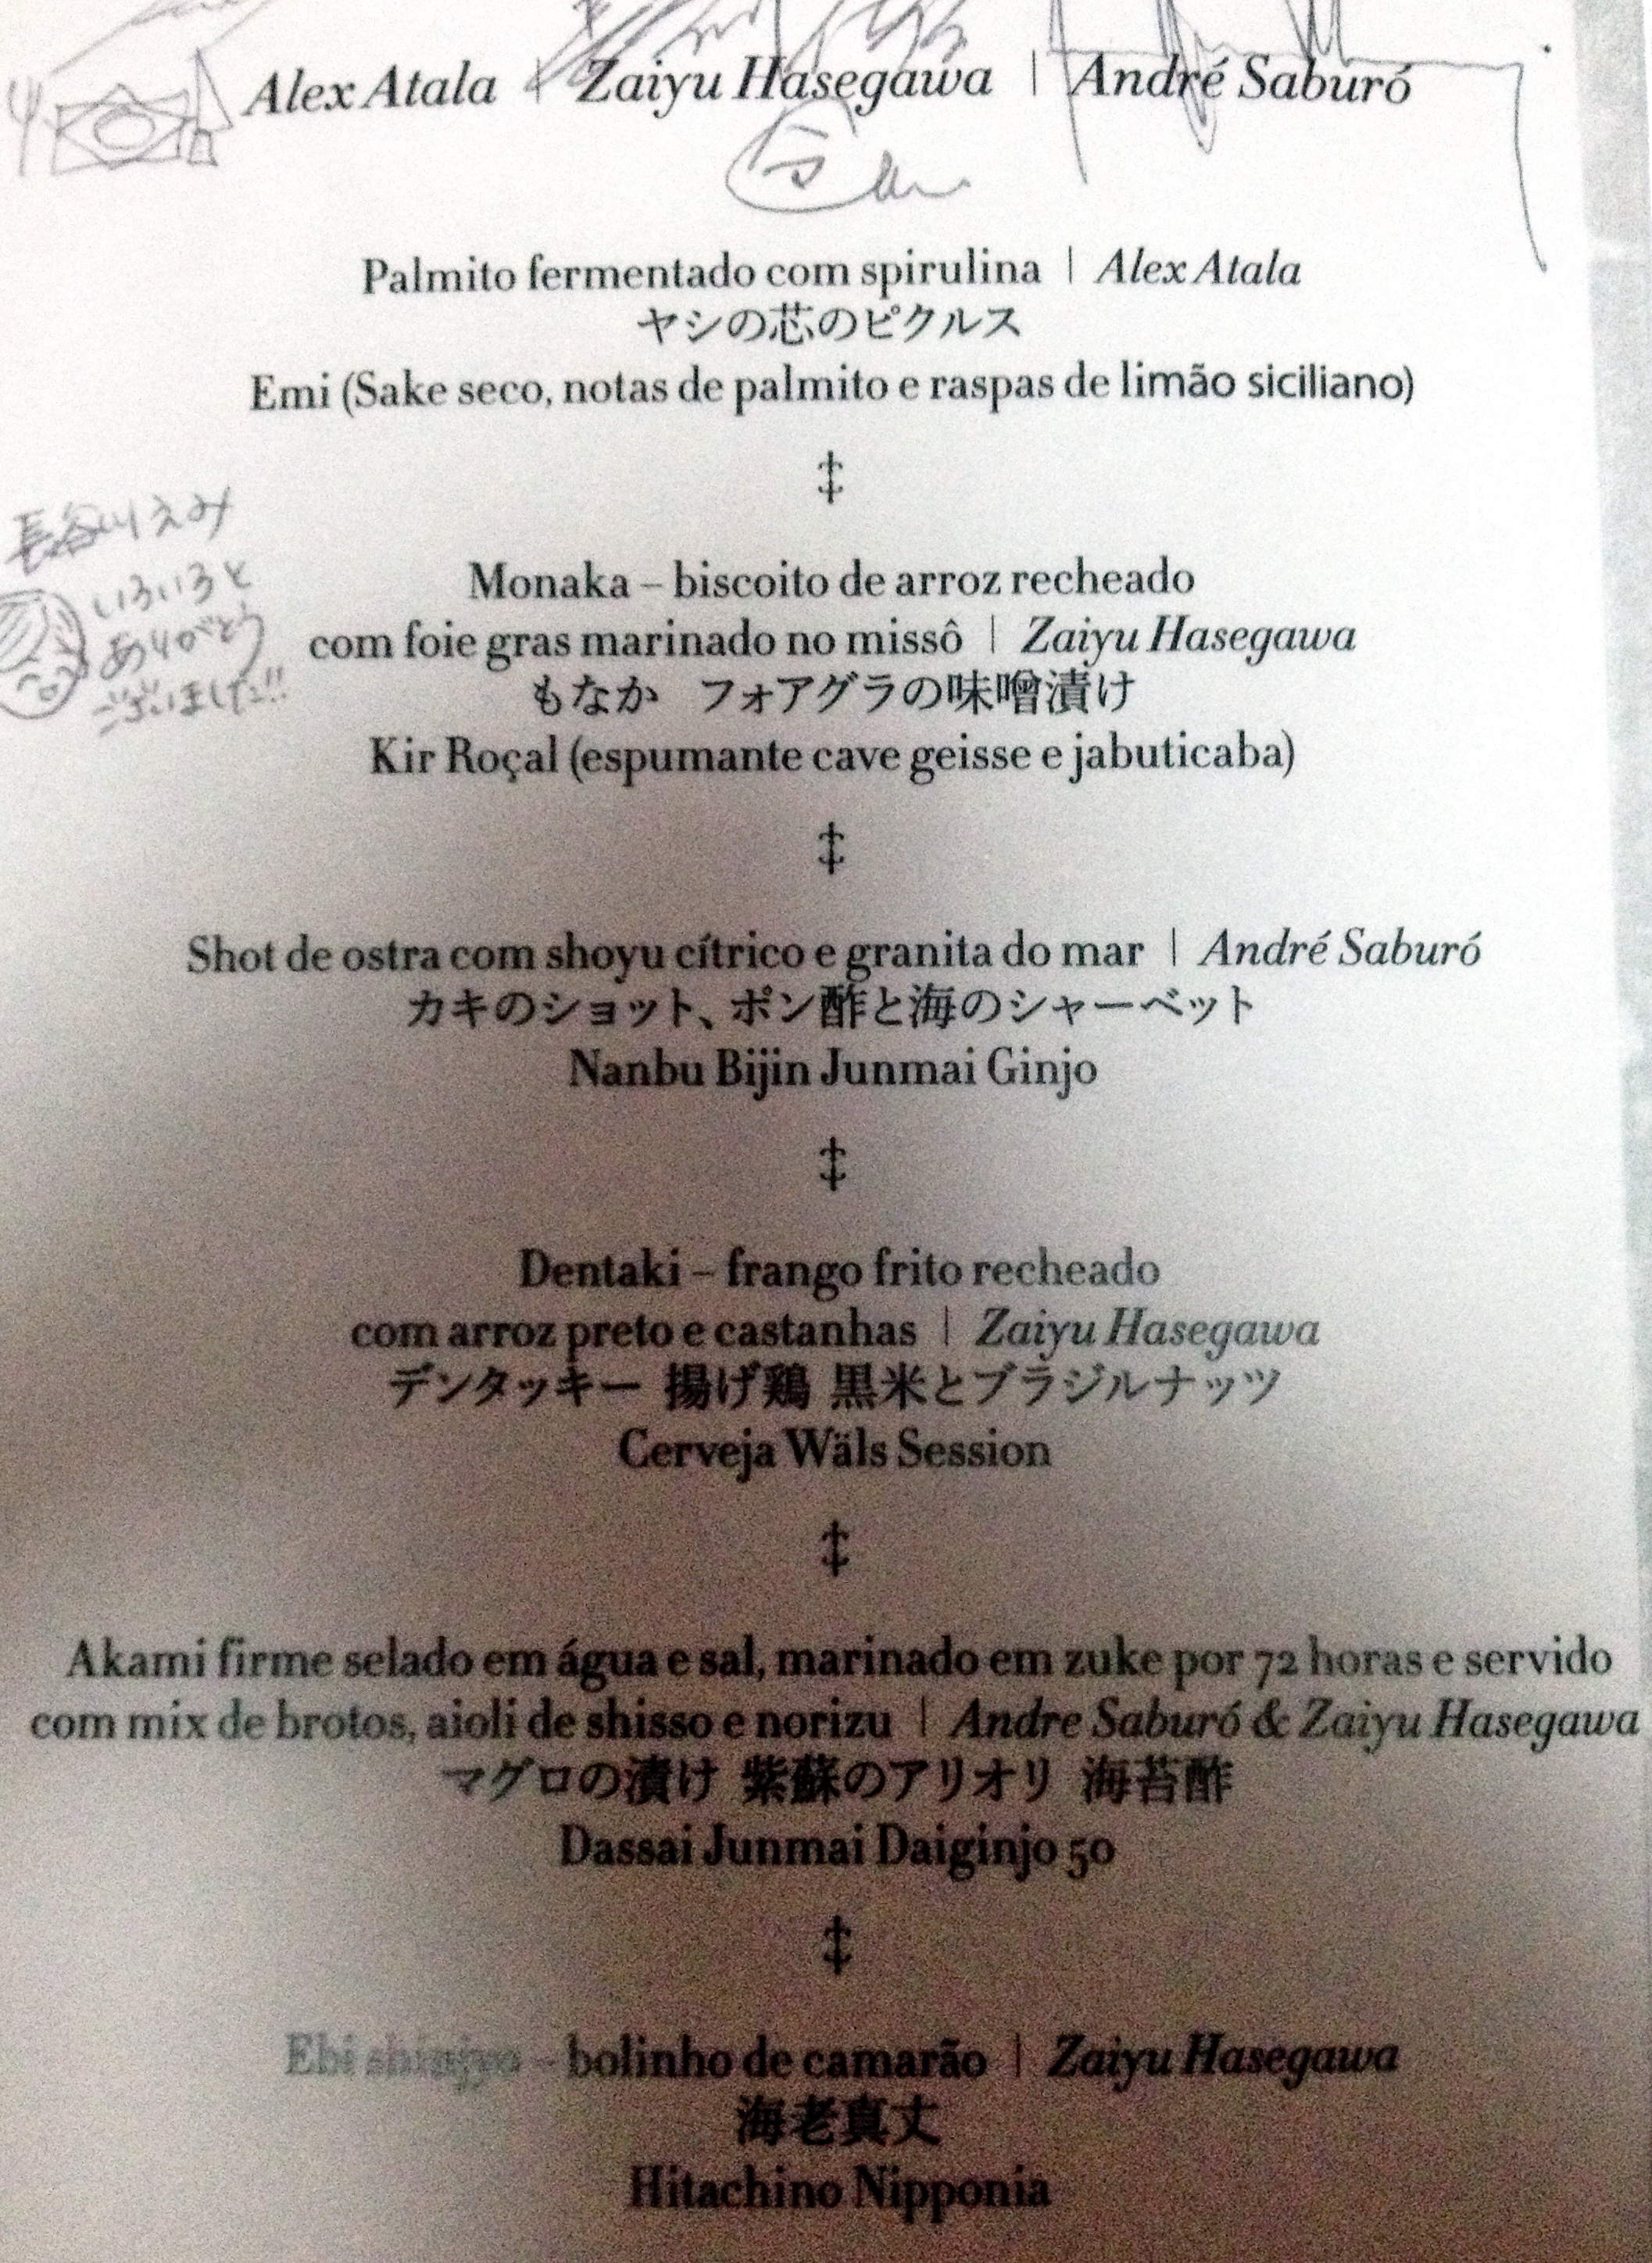 Alex Atala | Zaiyu Hasegawa | André Saburó
Palmito fermentado com spirulina | Alex Atala
ヤシの芯のピクルス
Emi (Sake seco, notas de palmito e raspas de limão siciliano)
‡
長谷川えみ
いろいろと
ありがとう
ございました!!
Monaka – biscoito de arroz recheado
com foie gras marinado no missô | Zaiyu Hasegawa
もなか フォアグラの味噌漬け
Kir Roçal (espumante cave geisse e jabuticaba)
‡
Shot de ostra com shoyu cítrico e granita do mar | André Saburó
カキのショット、ポン酢と海のシャーベット
Nanbu Bijin Junmai Ginjo
‡
Dentaki – frango frito recheado
com arroz preto e castanhas | Zaiyu Hasegawa
デンタッキー 揚げ鶏 黒米とブラジルナッツ
Cerveja Wäls Session
‡
Akami firme selado em água e sal, marinado em zuke por 72 horas e servido
com mix de brotos, aioli de shisso e norizu | Andre Saburó & Zaiyu Hasegawa
マグロの漬け 紫蘇のアリオリ 海苔酢
Dassai Junmai Daiginjo 50
‡
Ebi shinjyo – bolinho de camarão | Zaiyu Hasegawa
海老真丈
Hitachino Nipponia